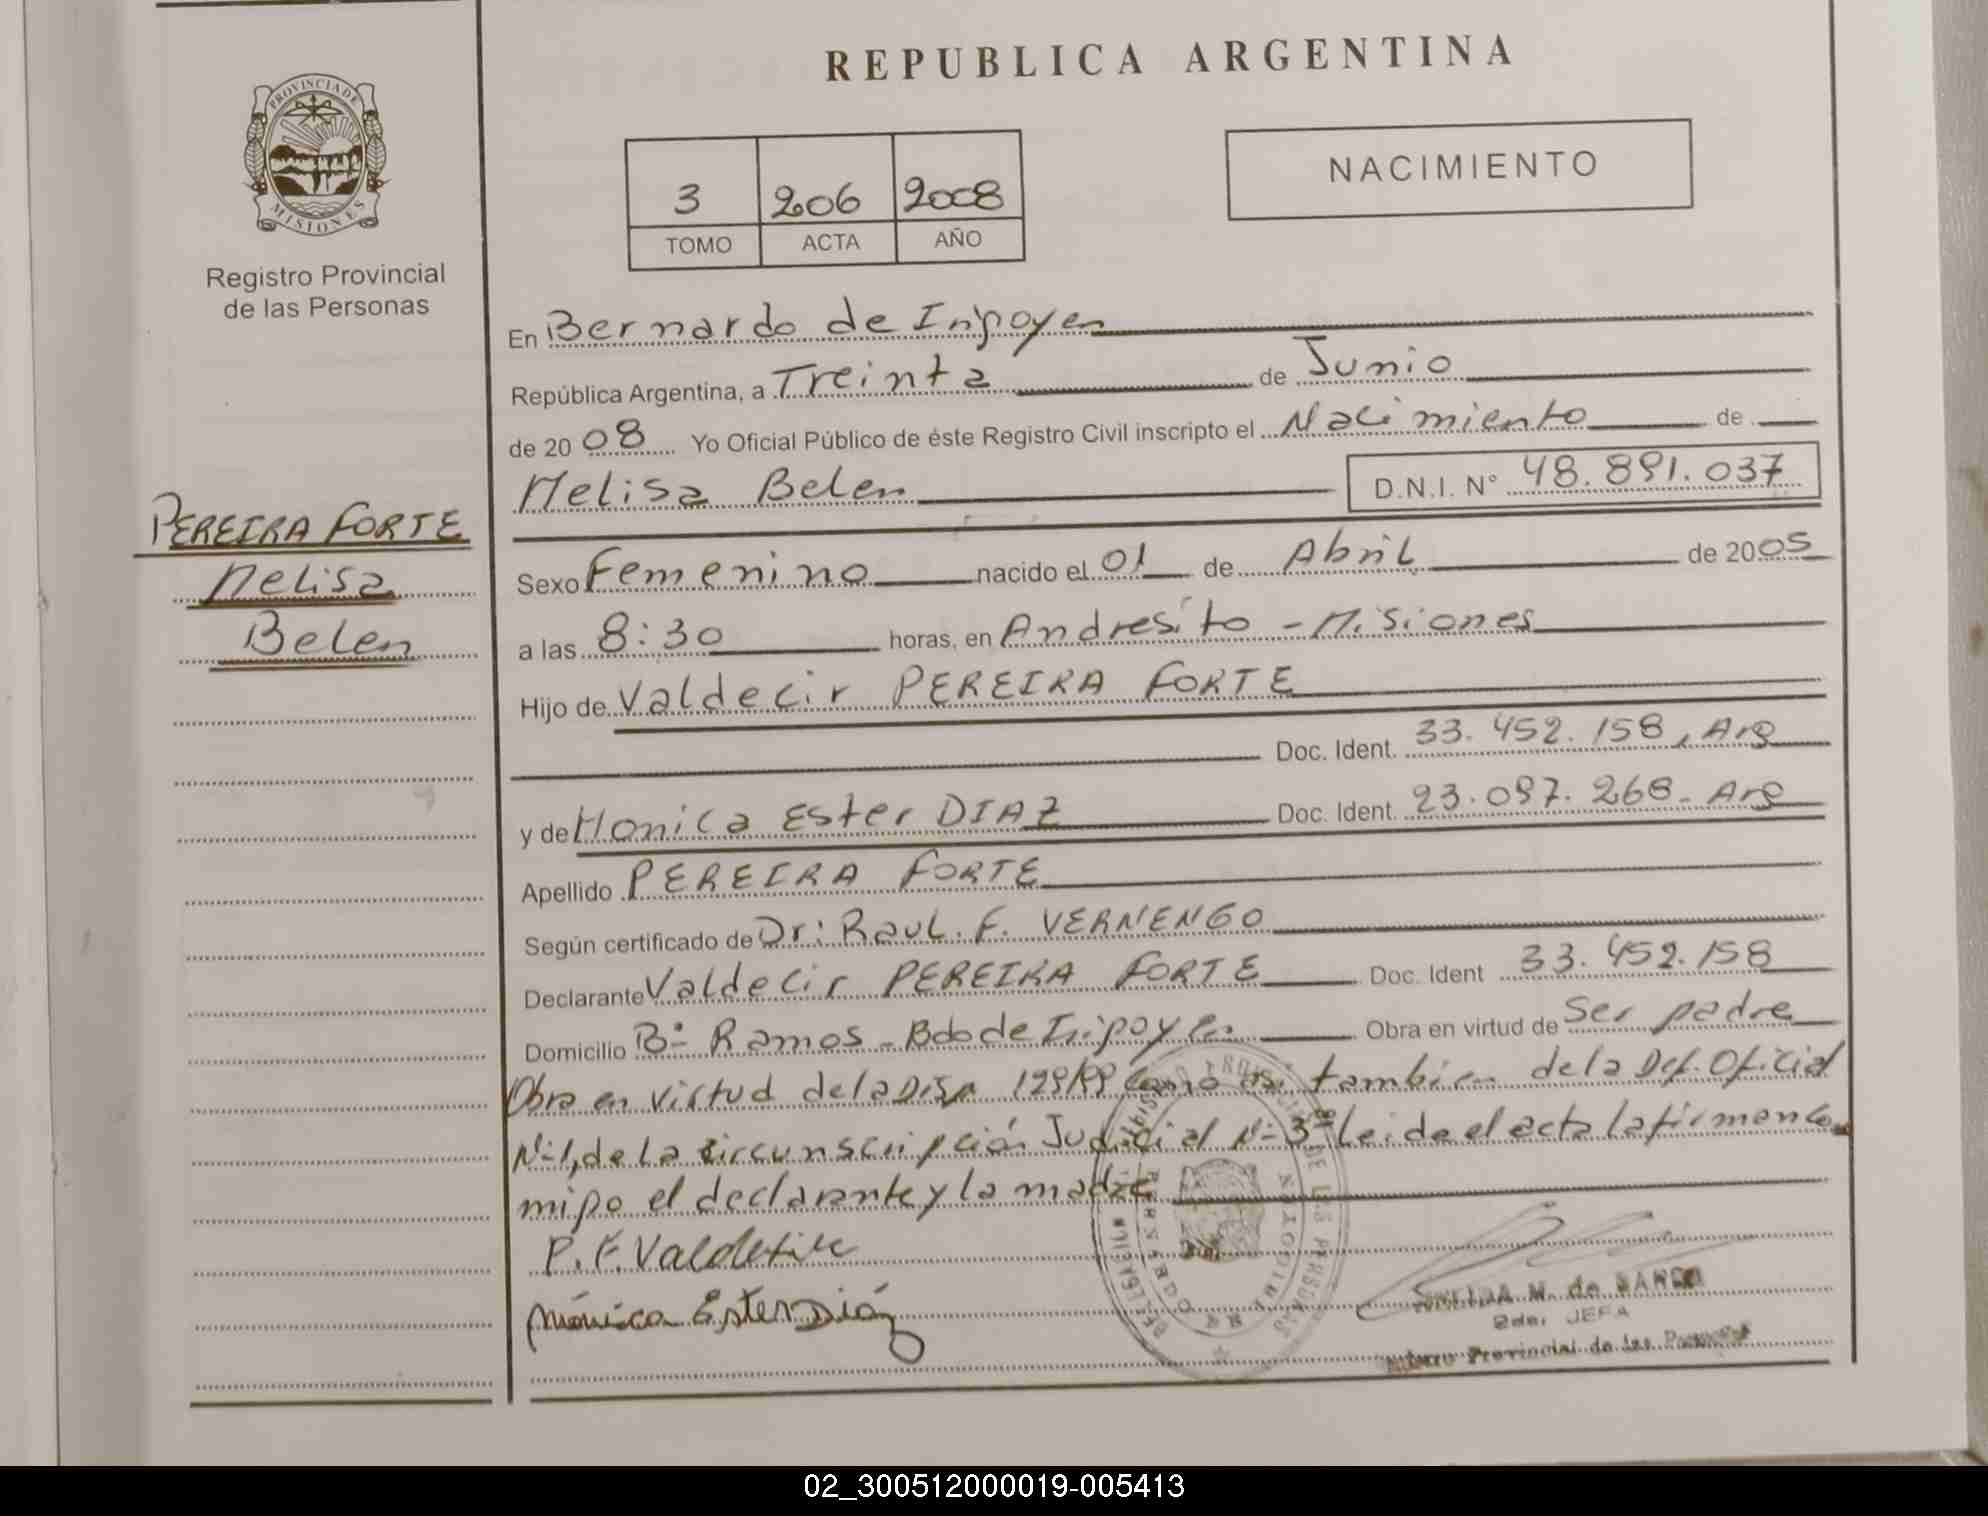 REPUBLICA ARGENTINA
PROVINCIA DE
MISIONES
Registro Provincial
de las Personas
3 206 2008
TOMO ACTA AÑO
NACIMIENTO
PEREIRA FORTE
Melisa
Belen
En Bernardo de Irigoyen
República Argentina, a Treinta de Junio
de 2008 Yo Oficial Público de éste Registro Civil inscripto el Nacimiento de
Melisa Belen D.N.I. N° 48.891.037
Sexo Femenino nacido el 01 de Abril de 2005
a las 8:30 horas, en Andresito - Misiones
Hijo de Valdecir PEREIRA FORTE
Doc. Ident. 33.452.158, Arg
y de Monica Ester DIAZ Doc. Ident. 23.097.268- Arg
Apellido PEREIRA FORTE
Según certificado de Dr: Raul. F. VERNENGO
Declarante Valdecir PEREIRA FORTE Doc. Ident 33.452.158
Domicilio B° Ramos - Bdo de Irigoyen Obra en virtud de Ser padre
Obra en virtud de la Disp 129/99 Como asi tambien de la Def. Oficial
N°1, de la circunscripción Judicial N° 3° Leida el acta la firman co
migo el declarante y la madre
P. F. Valdecir
Mónica Ester Diáz
M. de
2da. JEFA
Provincial de las
02_300512000019-005413